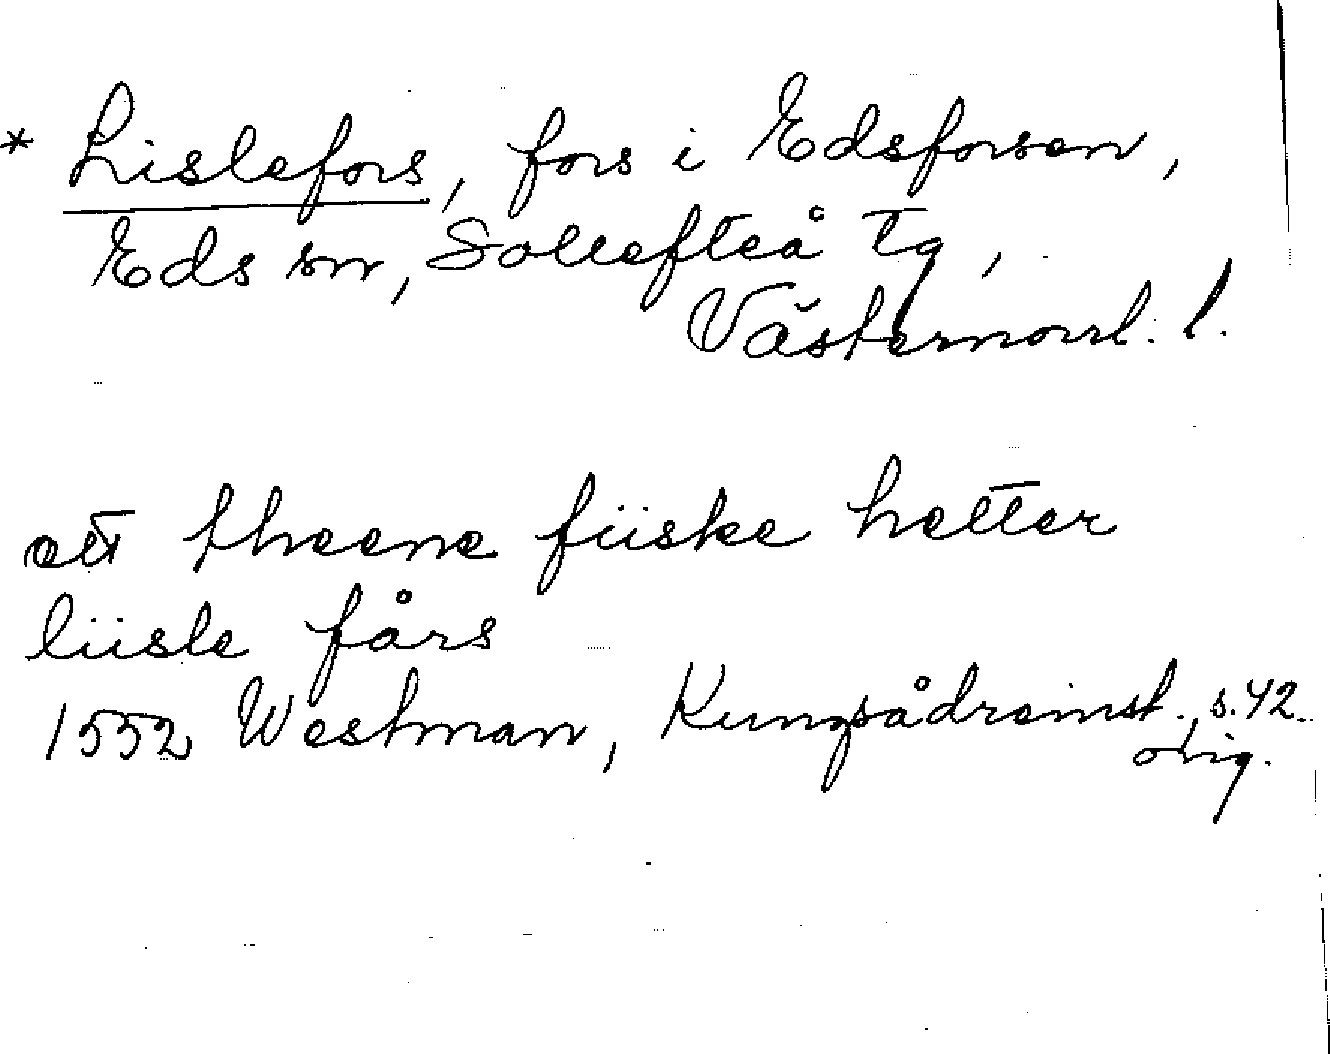 * Lislefors, fors i Edsforsen,
Eds sn, Sollefteå tg,
Västernorrl. l.
ett theene fiiske hetter
liisle fårs
1552 Westman, Kungsådreinst., s. 42.
orig.